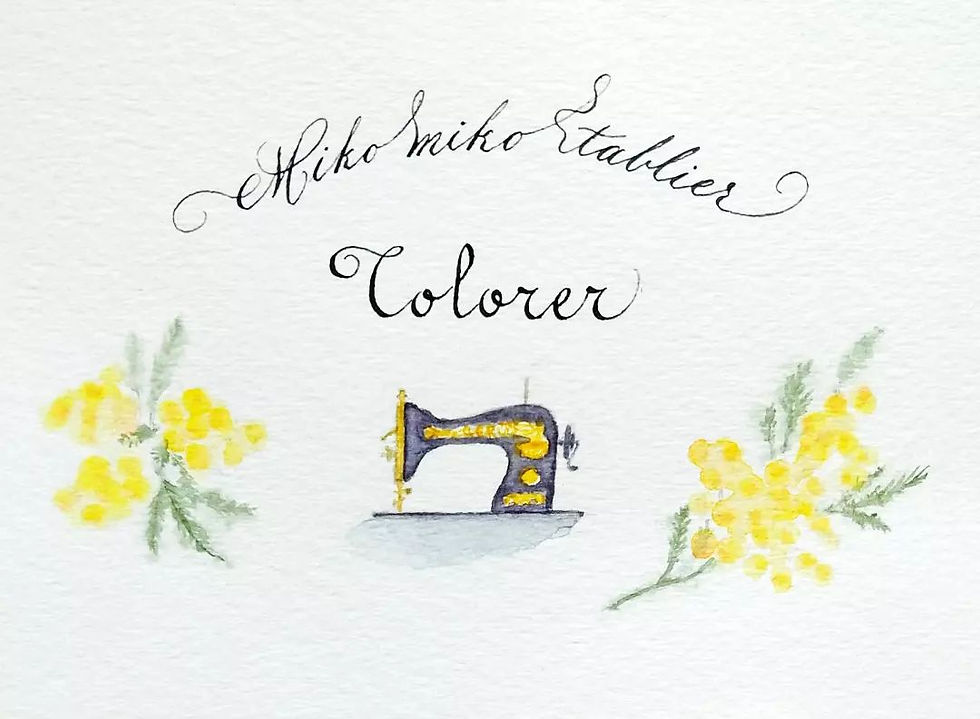 Miko miko Etablier
Colorer